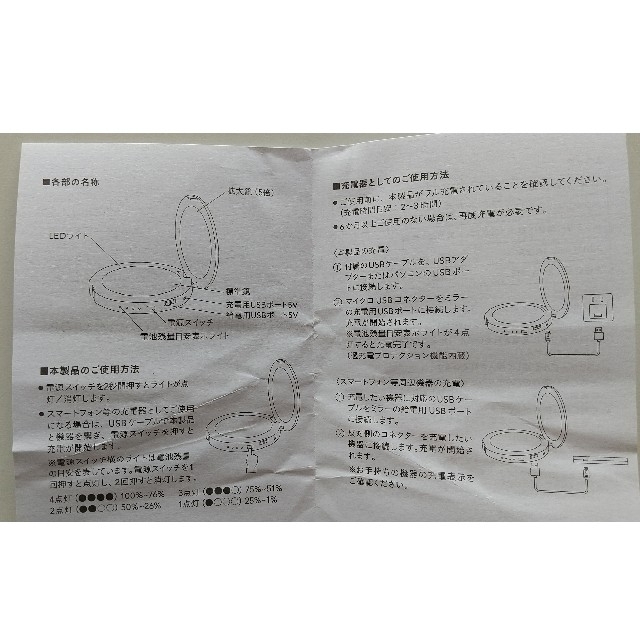 ■各部の名称
拡大鏡(5倍)
LEDライト
標準鏡
充電用USBポート5V
給電用USBポート5V
電源スイッチ
電池残量目安表示ライト
■本製品のご使用方法
●電源スイッチを2秒間押すとライトが点
灯/消灯します。
●スマートフォン等の充電器としてご使用
になる場合は、USBケーブルで本製品
と機器を繋ぎ、電源スイッチを押すと
充電が開始します。
※電源スイッチ横のライトは電池残量
の目安を表しています。電源スイッチを1
回押すと点灯し、2回押すと消灯します。
4点灯(●●●●)100%~76% 3点灯(●●●○)75%~51%
2点灯(●●○○)50%~26% 1点灯(●○○○)25%~1%
■充電器としてのご使用方法
●ご使用前に、本製品がフル充電されていることを確認してください。
(充電時間目安:2~3時間)
●6か月以上ご使用のない場合は、再度充電が必要です。
〈本製品の充電〉
①付属のUSBケーブルを、USBアダ
プターまたはパソコンのUSBポー
トに接続します。
②マイクロUSBコネクターをミラー
の充電用USBポートに接続します。
充電が開始されます。
※電池残量目安表示ライトが4点
灯すると充電完了です。
(過充電プロテクション機能内蔵)
〈スマートフォン等周辺機器の充電〉
①充電したい機器に対応のUSBケー
ブルをミラーの給電用USBポート
に接続します。
②反対側のコネクターを充電したい
機器に接続します。充電が開始さ
れます。
※お手持ちの機器の充電表示を
ご確認ください。